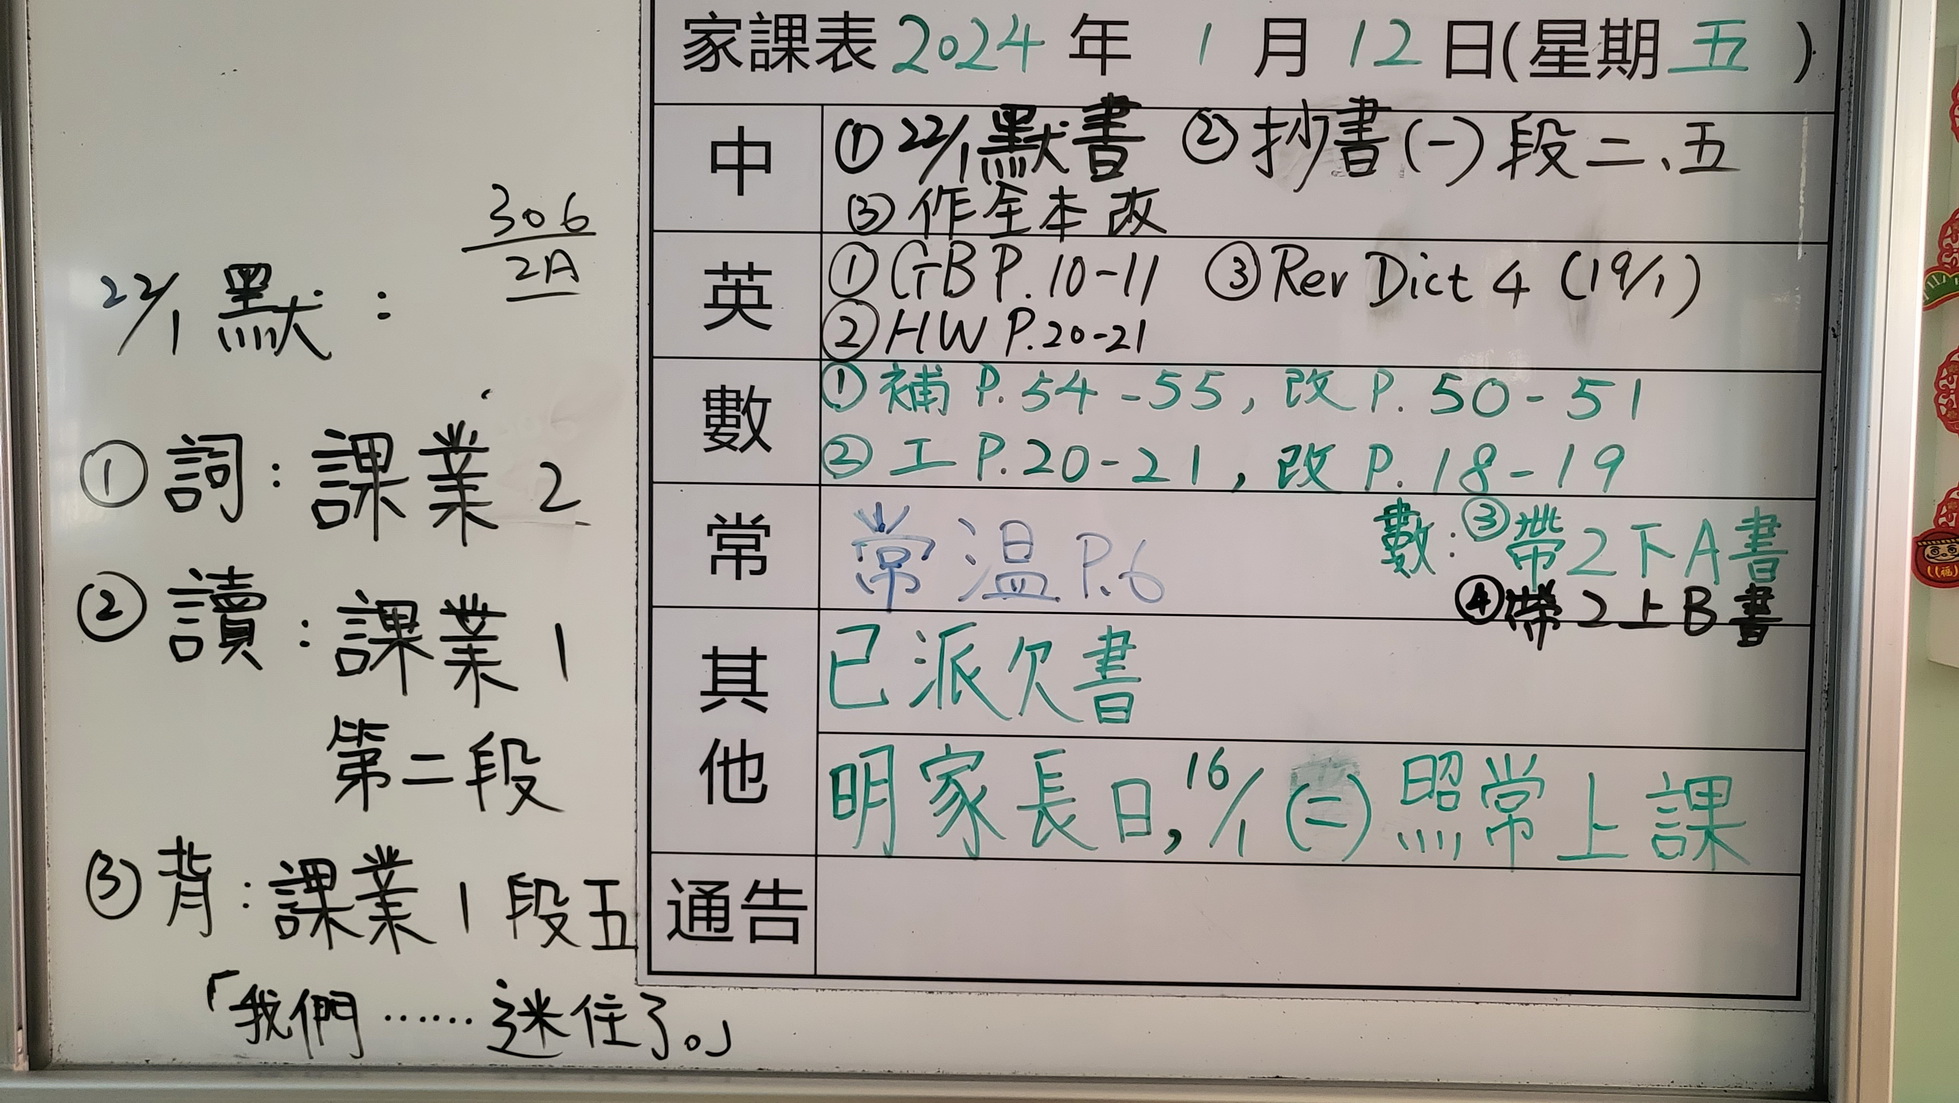 家課表 2024 年 1 月 12 日(星期 五 )
中
① 22/1 默書 ② 抄書(一)段二、五
③ 作全本改
英
① GB P.10-11 ③ Rev Dict 4 (19/1)
② HW P.20-21
數
① 補 P.54-55, 改 P. 50-51
② 工 P.20-21, 改 P. 18-19
常
常溫 P.6
數: ③ 帶2下A書
④ 帶2上B書
其他
已派欠書
明家長日, 16/1 (二) 照常上課
通告
306
2A
22/1 默:
① 詞: 課業 2
② 讀: 課業 1
第二段
③ 背: 課業 1 段五
「我們……迷住了。」